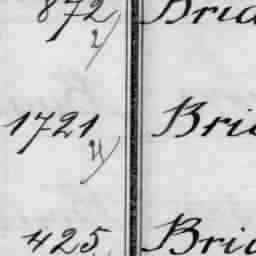 872 Brid
2/
1721 Brid
4/
425 Brid